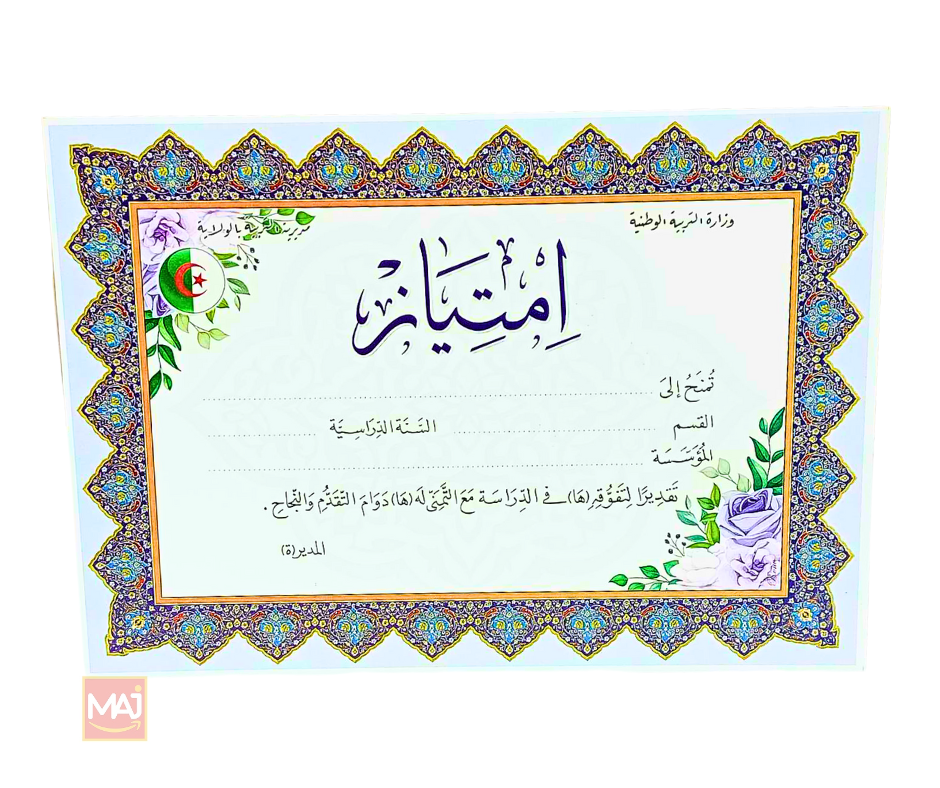 وزارة التربية الوطنية
مديرية التربية بالولاية
اِمتِيَاز
تُمنَحُ إلىَ
القسم السَّنَة الدِّرَاسِيَّة
المُؤَسَّسَة
تَقدِيرًا لِتَفَوُّقِهِ(هَا) في الدِّرَاسَة مَعَ التَّمَنِّي لَه(هَا) دَوَامَ التَّقَدُّمِ وَالنَّجَاحِ .
المدير(ة)
MAJ